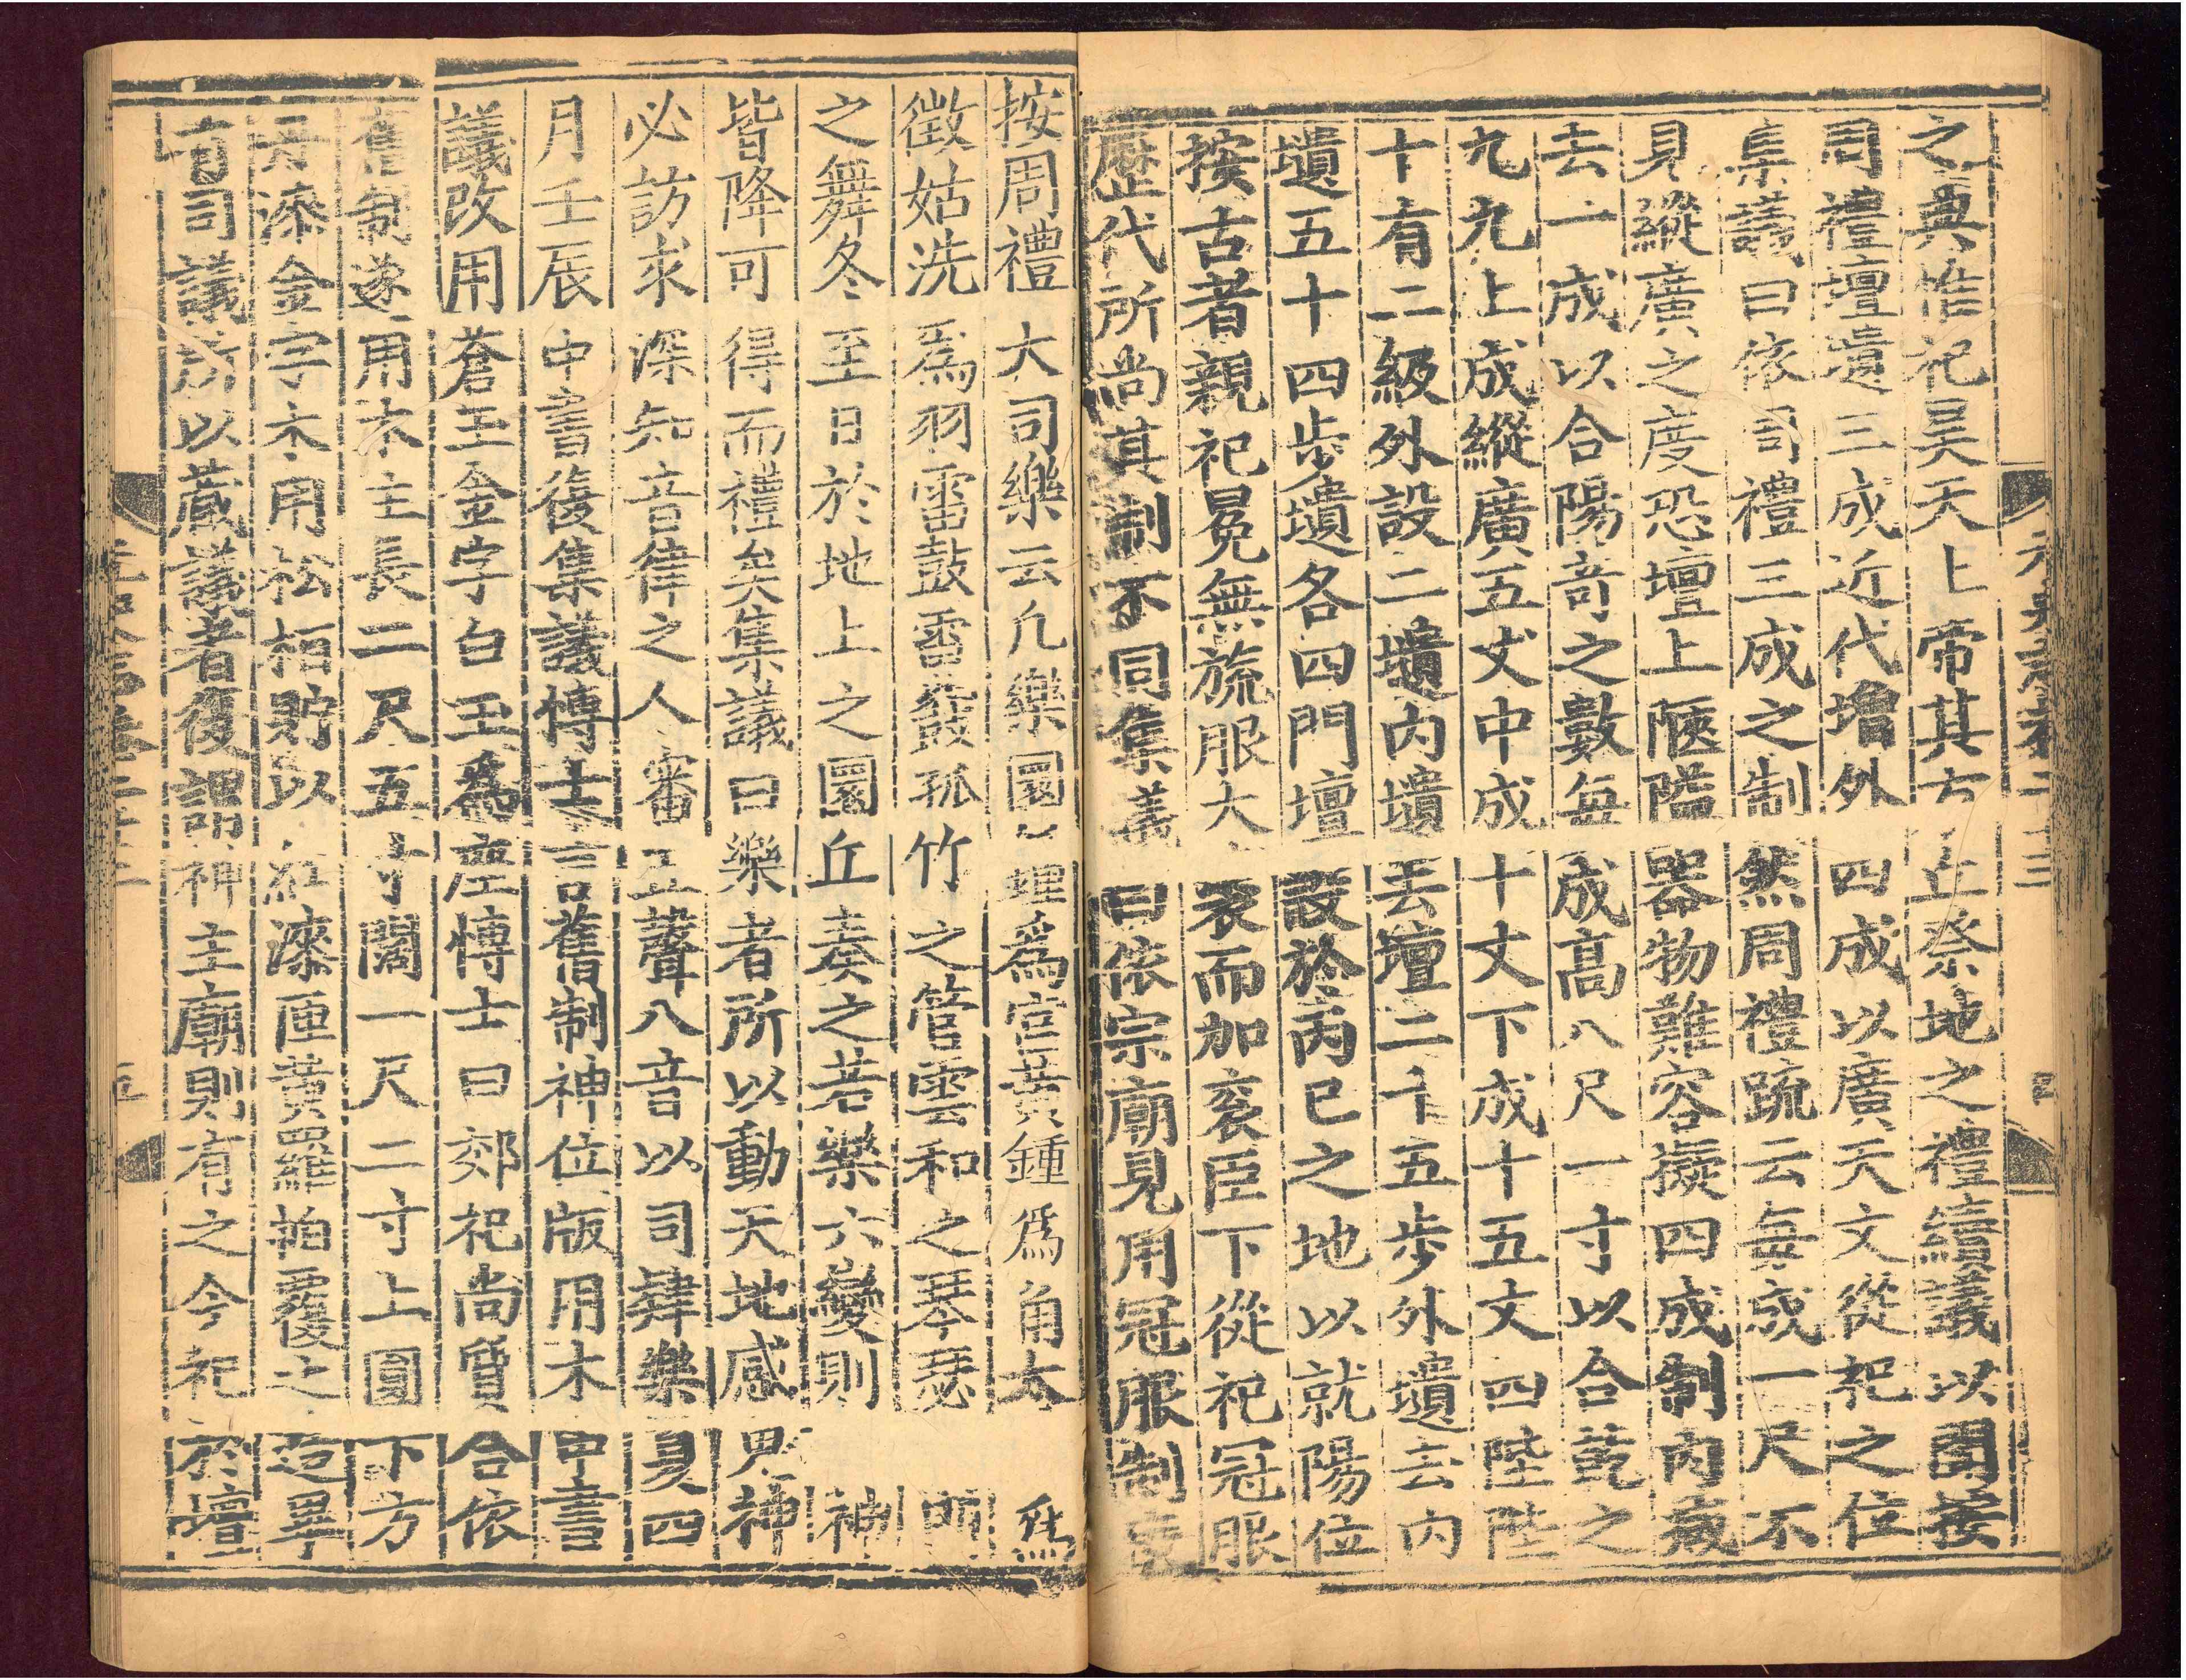 之典惟祀昊天上帝其方丘祭地之禮續議以聞按
周禮壇壝三成近代增外四成以廣天文從祀之位
集議曰依周禮三成之制然周禮疏云每成一尺不
見縱廣之度恐壇上陿隘器物難容擬四成制內減
去一成以合陽竒之數每成髙八尺一寸以合乾之
九九上成縱廣五丈中成十丈下成十五丈四陛陛
十有二級外設二壝內壝去壇二十五步外壝去內
壝五十四步壝各四門壇設於丙巳之地以就陽位
按古者親祀冕無旒服大裘而加衮臣下從祀冠服
歷代所尚其制不同集議曰依宗廟見用冠服制度
按周禮大司樂云凡樂圜鍾爲宮黃鍾爲角太
徵姑洗爲羽雷鼓雷鼗孤竹之管雲和之琴瑟
之舞冬至日於地上之圜丘奏之若樂六變則神
皆降可得而禮矣集議曰樂者所以動天地感鬼神
必訪求深知音律之人審五聲八音以司肄樂夏四
月壬辰中書復集議博士言舊制神位版用木中書
議改用蒼玉金字白玉爲座博士曰郊祀尚質合依
舊制遂用木主長二尺五寸闊一尺二寸上圓下方
丹漆金字木用松柏貯以紅漆匣黃羅帕覆之造畢
有司議所以蔵議者復謂神主廟則有之今祀於壇